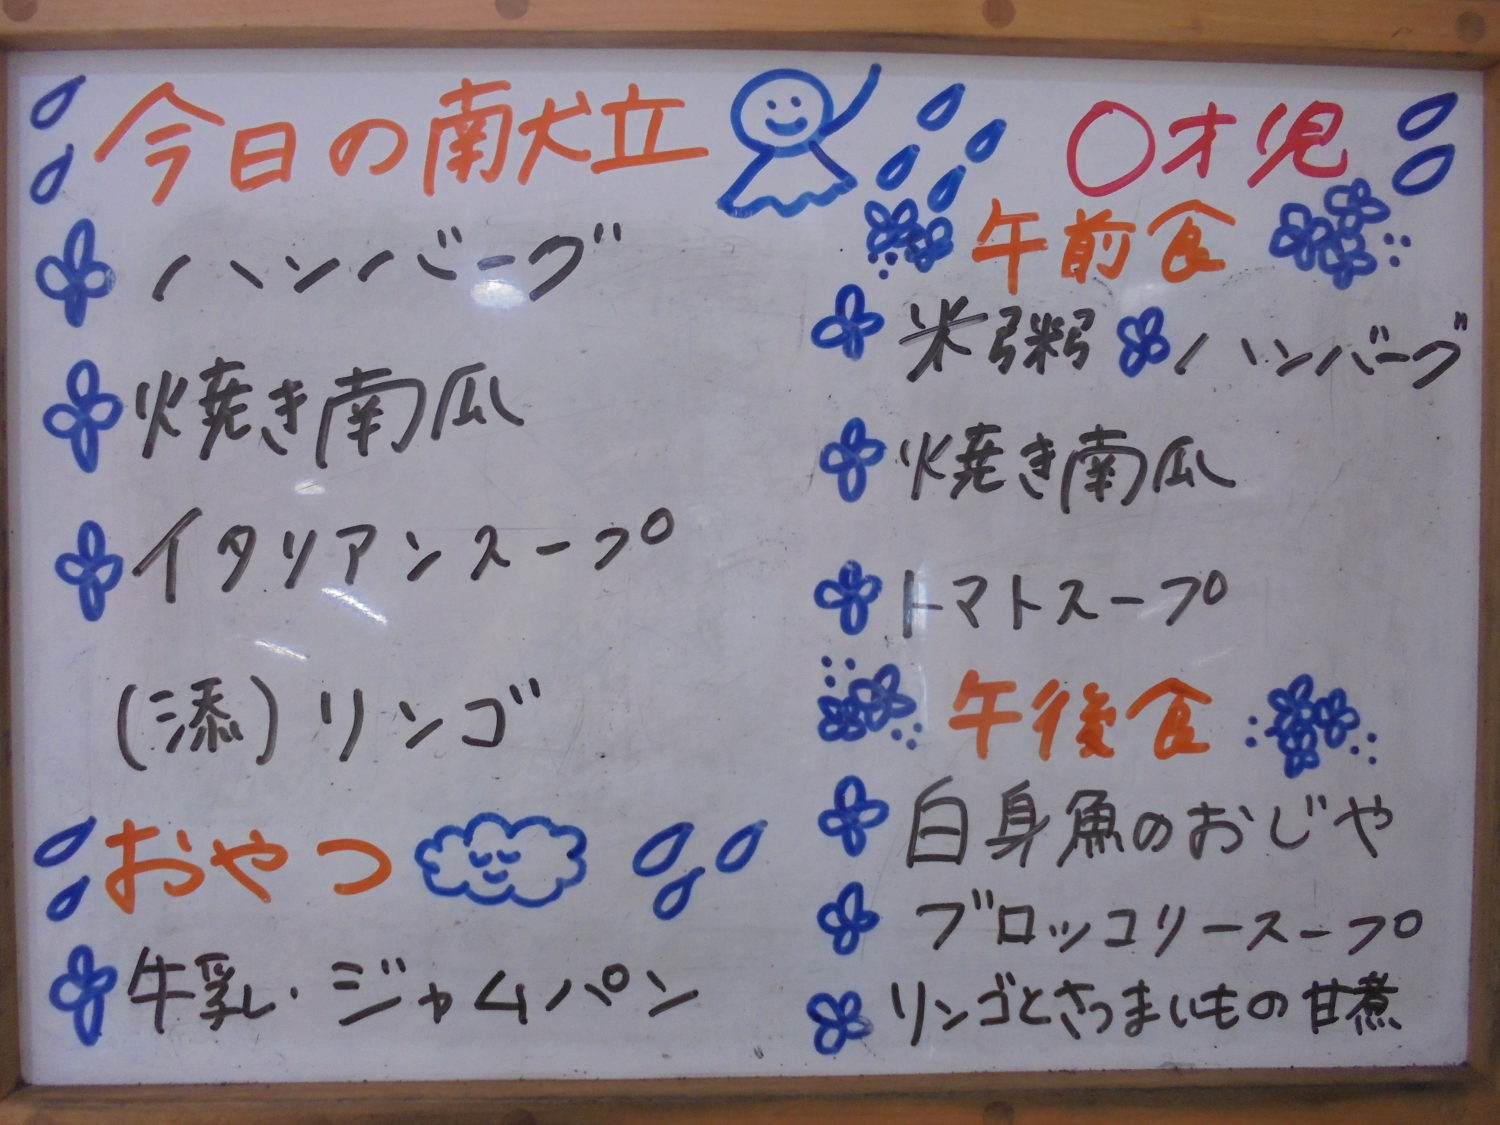 今日の献立
ハンバーグ
焼き南瓜
イタリアンスープ
(添)リンゴ
おやつ
牛乳・ジャムパン
〇才児
午前食
米粥 ハンバーグ
焼き南瓜
トマトスープ
午後食
白身魚のおじや
ブロッコリースープ
リンゴとさつまいもの甘煮